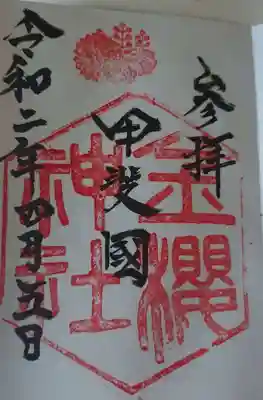 参拝
甲斐國
金櫻
神社
令和二年四月五日